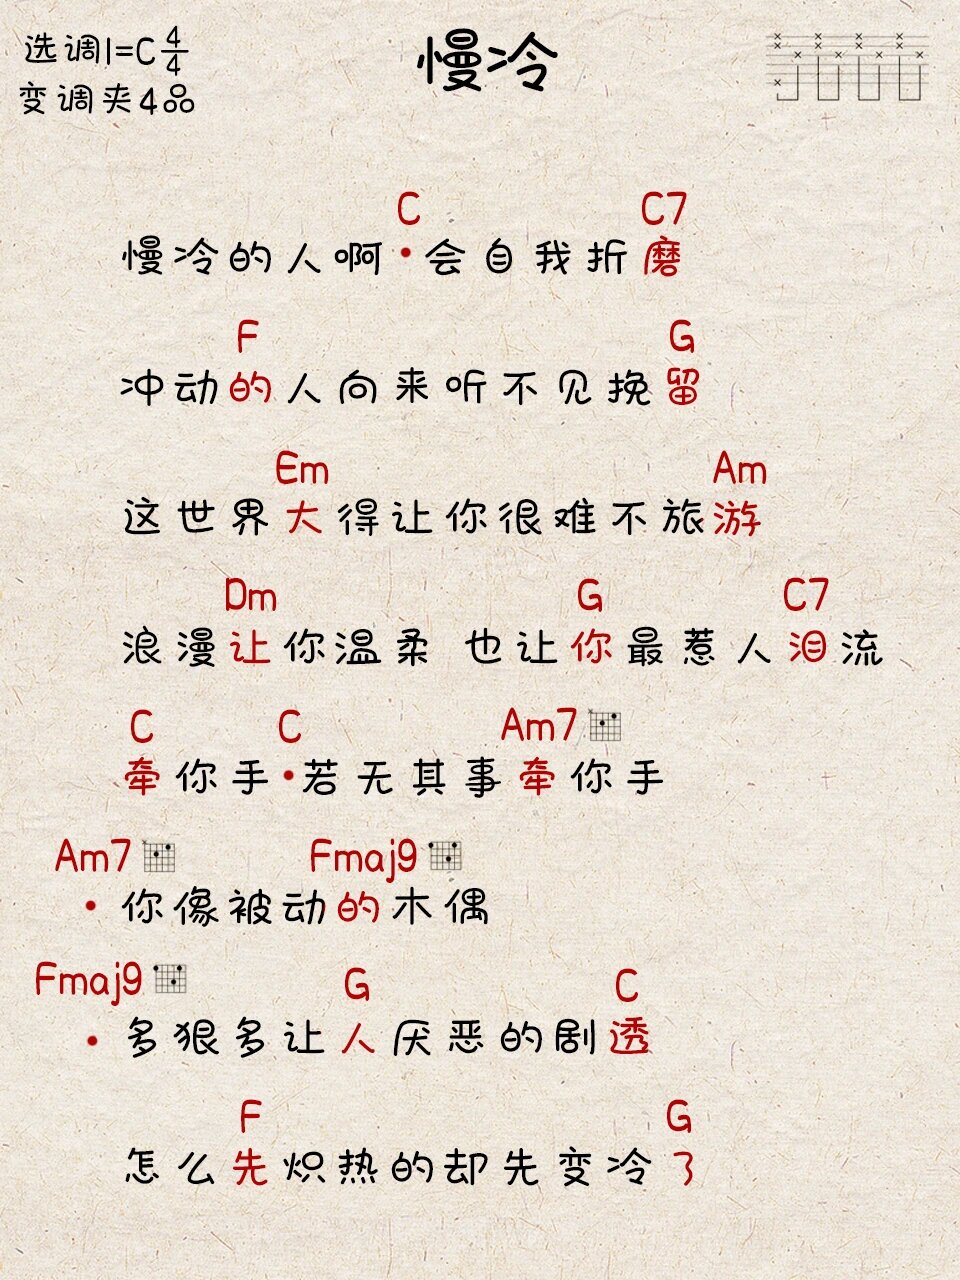 选调1=C 4/4
变调夹4品
慢冷
C C7
慢冷的人啊·会自我折磨
F G
冲动的人向来听不见挽留
Em Am
这世界大得让你很难不旅游
Dm G C7
浪漫让你温柔 也让你最惹人泪流
C C Am7
牵你手·若无其事牵你手
Am7 Fmaj9
·你像被动的木偶
Fmaj9 G C
·多狠多让人厌恶的剧透
F G
怎么先炽热的却先变冷了